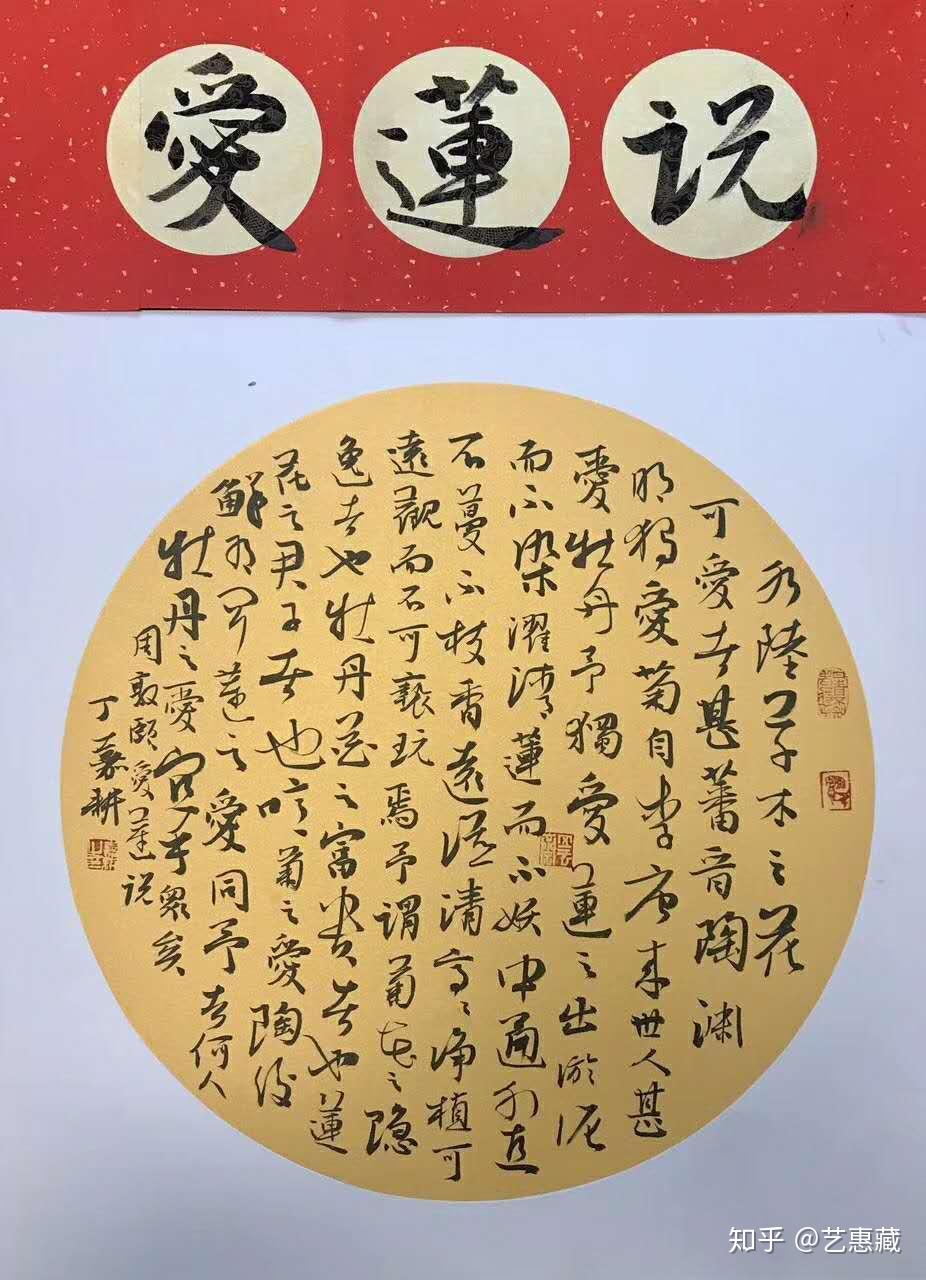 愛蓮说
水陸草木之花
可愛者甚蕃晋陶渊
明独愛菊自李唐来世人甚
愛牡丹予獨愛蓮之出淤泥
而不染濯清蓮而不妖中通外直
不蔓不枝香遠溢清亭々净植可
遠觀而不可褻玩焉予謂菊花之隐
逸者也牡丹花之富贵者也蓮
花之君子者也噫菊之愛陶後
鮮有闻蓮之愛同予者何人
牡丹之愛宜乎眾矣
周敦颐愛蓮说
丁嘉耕
知乎 @艺惠藏